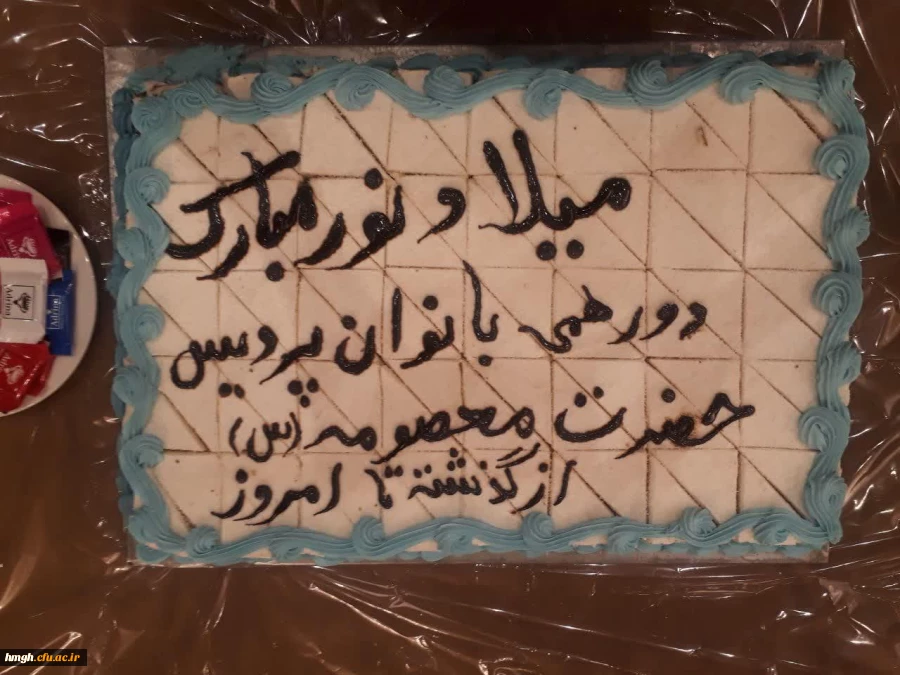 میلاد نور مبارک
دورهمی بانوان پردیس
حضرت معصومه (س)
از گذشته تا امروز
Adrina
hmgh.cfu.ac.ir